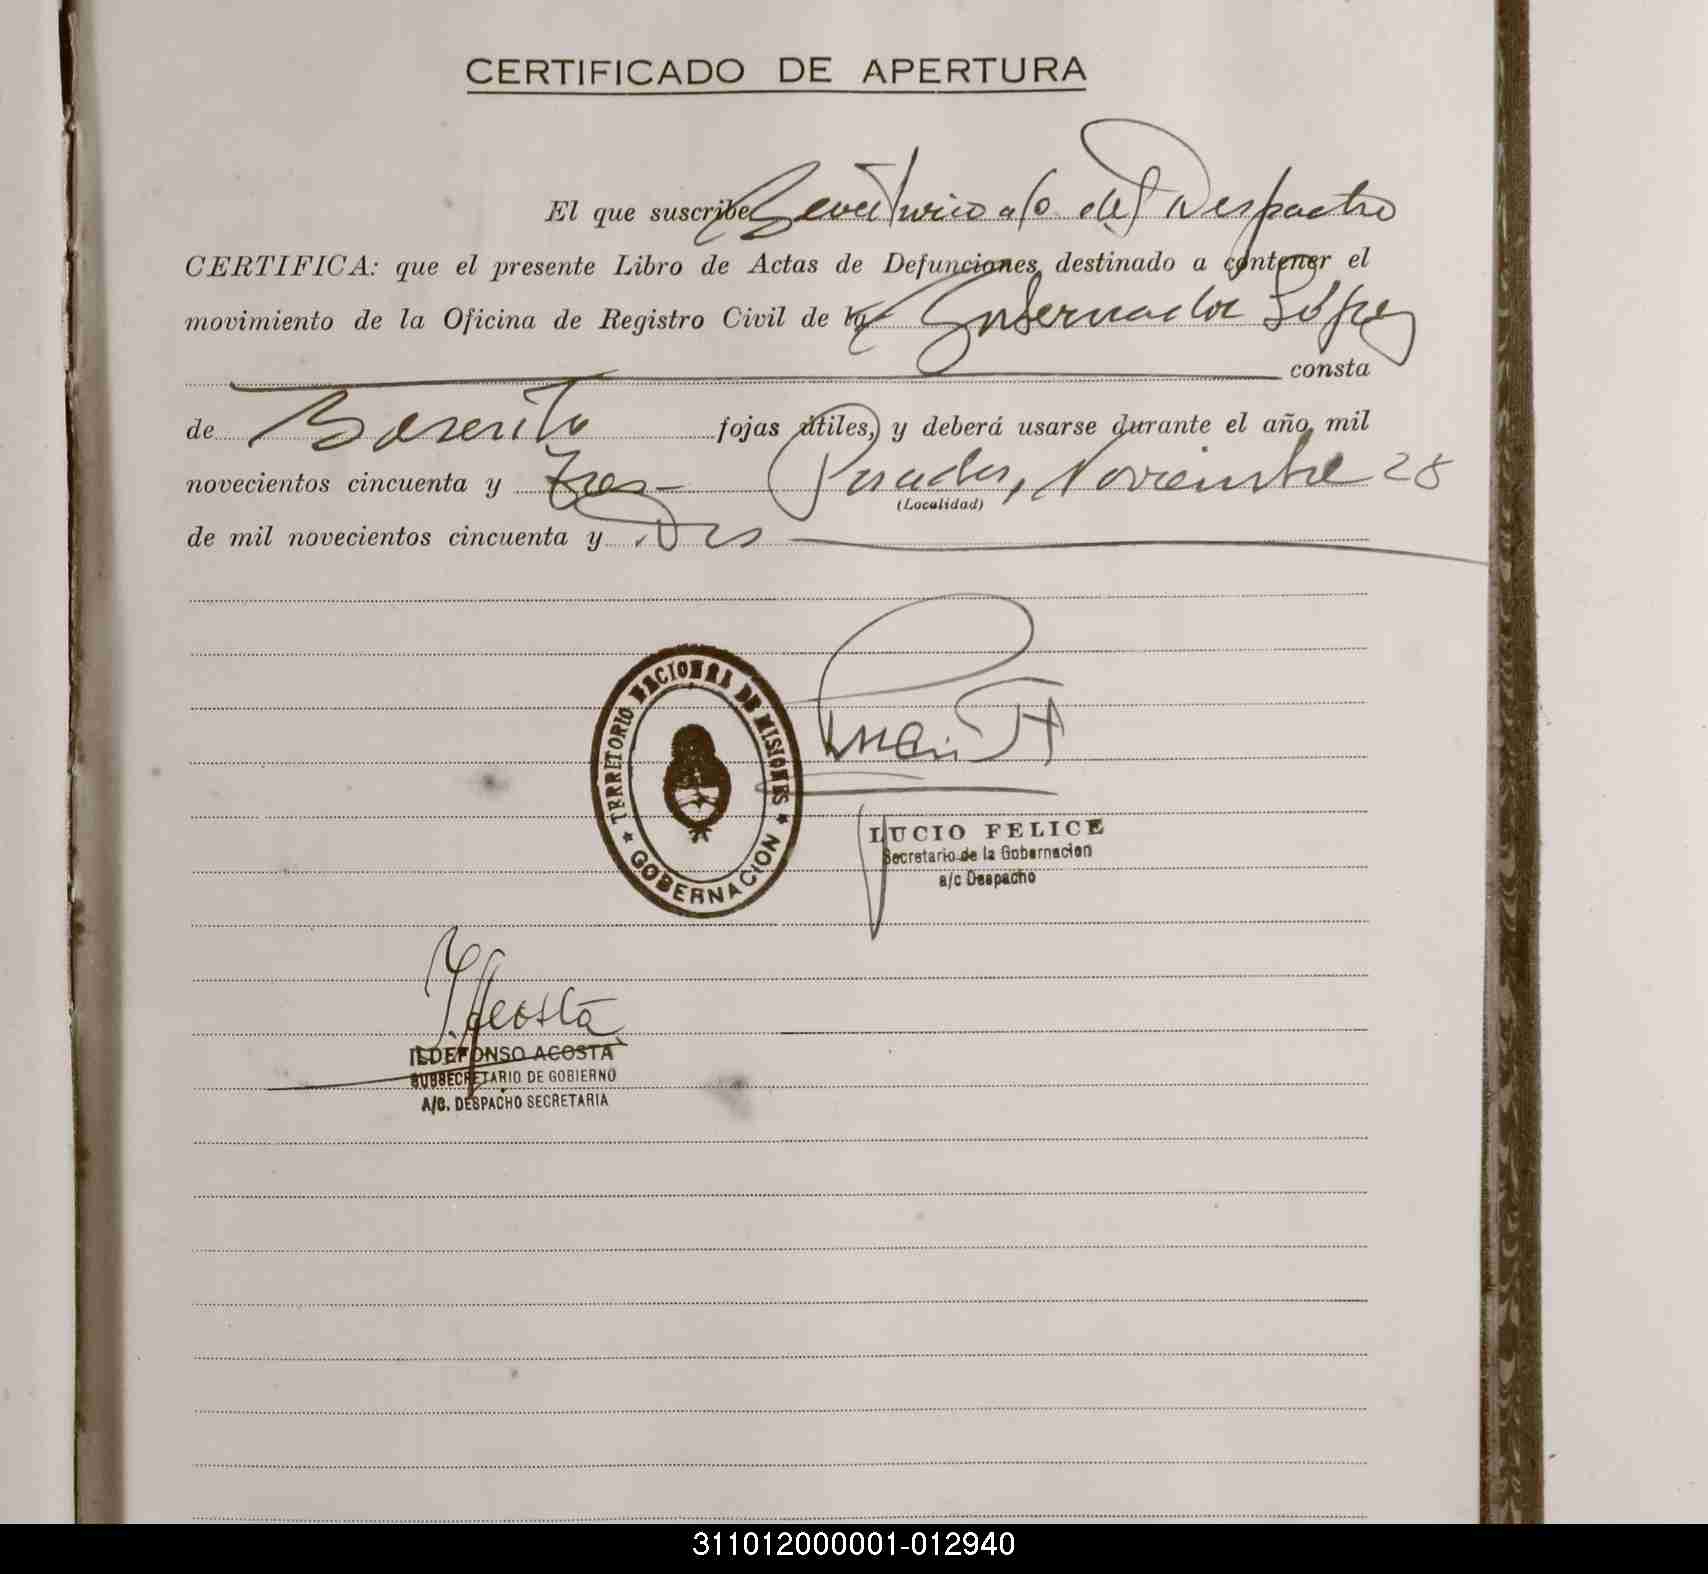 CERTIFICADO DE APERTURA
El que suscribe Secretario a/c del Despacho
CERTIFICA: que el presente Libro de Actas de Defunciones, destinado a contener el
movimiento de la Oficina de Registro Civil de la Gobernador López
consta
de fojas útiles, y deberá usarse durante el año mil
novecientos cincuenta y tres Posadas, Noviembre 28
(Localidad)
de mil novecientos cincuenta y Dos
TERRITORIO NACIONAL DE MISIONES
* GOBERNACION *
LUCIO FELICE
Secretario de la Gobernacion
a/c Despacho
I. Acosta
ILDEFONSO ACOSTA
SUBSECRETARIO DE GOBIERNO
A/C. DESPACHO SECRETARIA
311012000001-012940